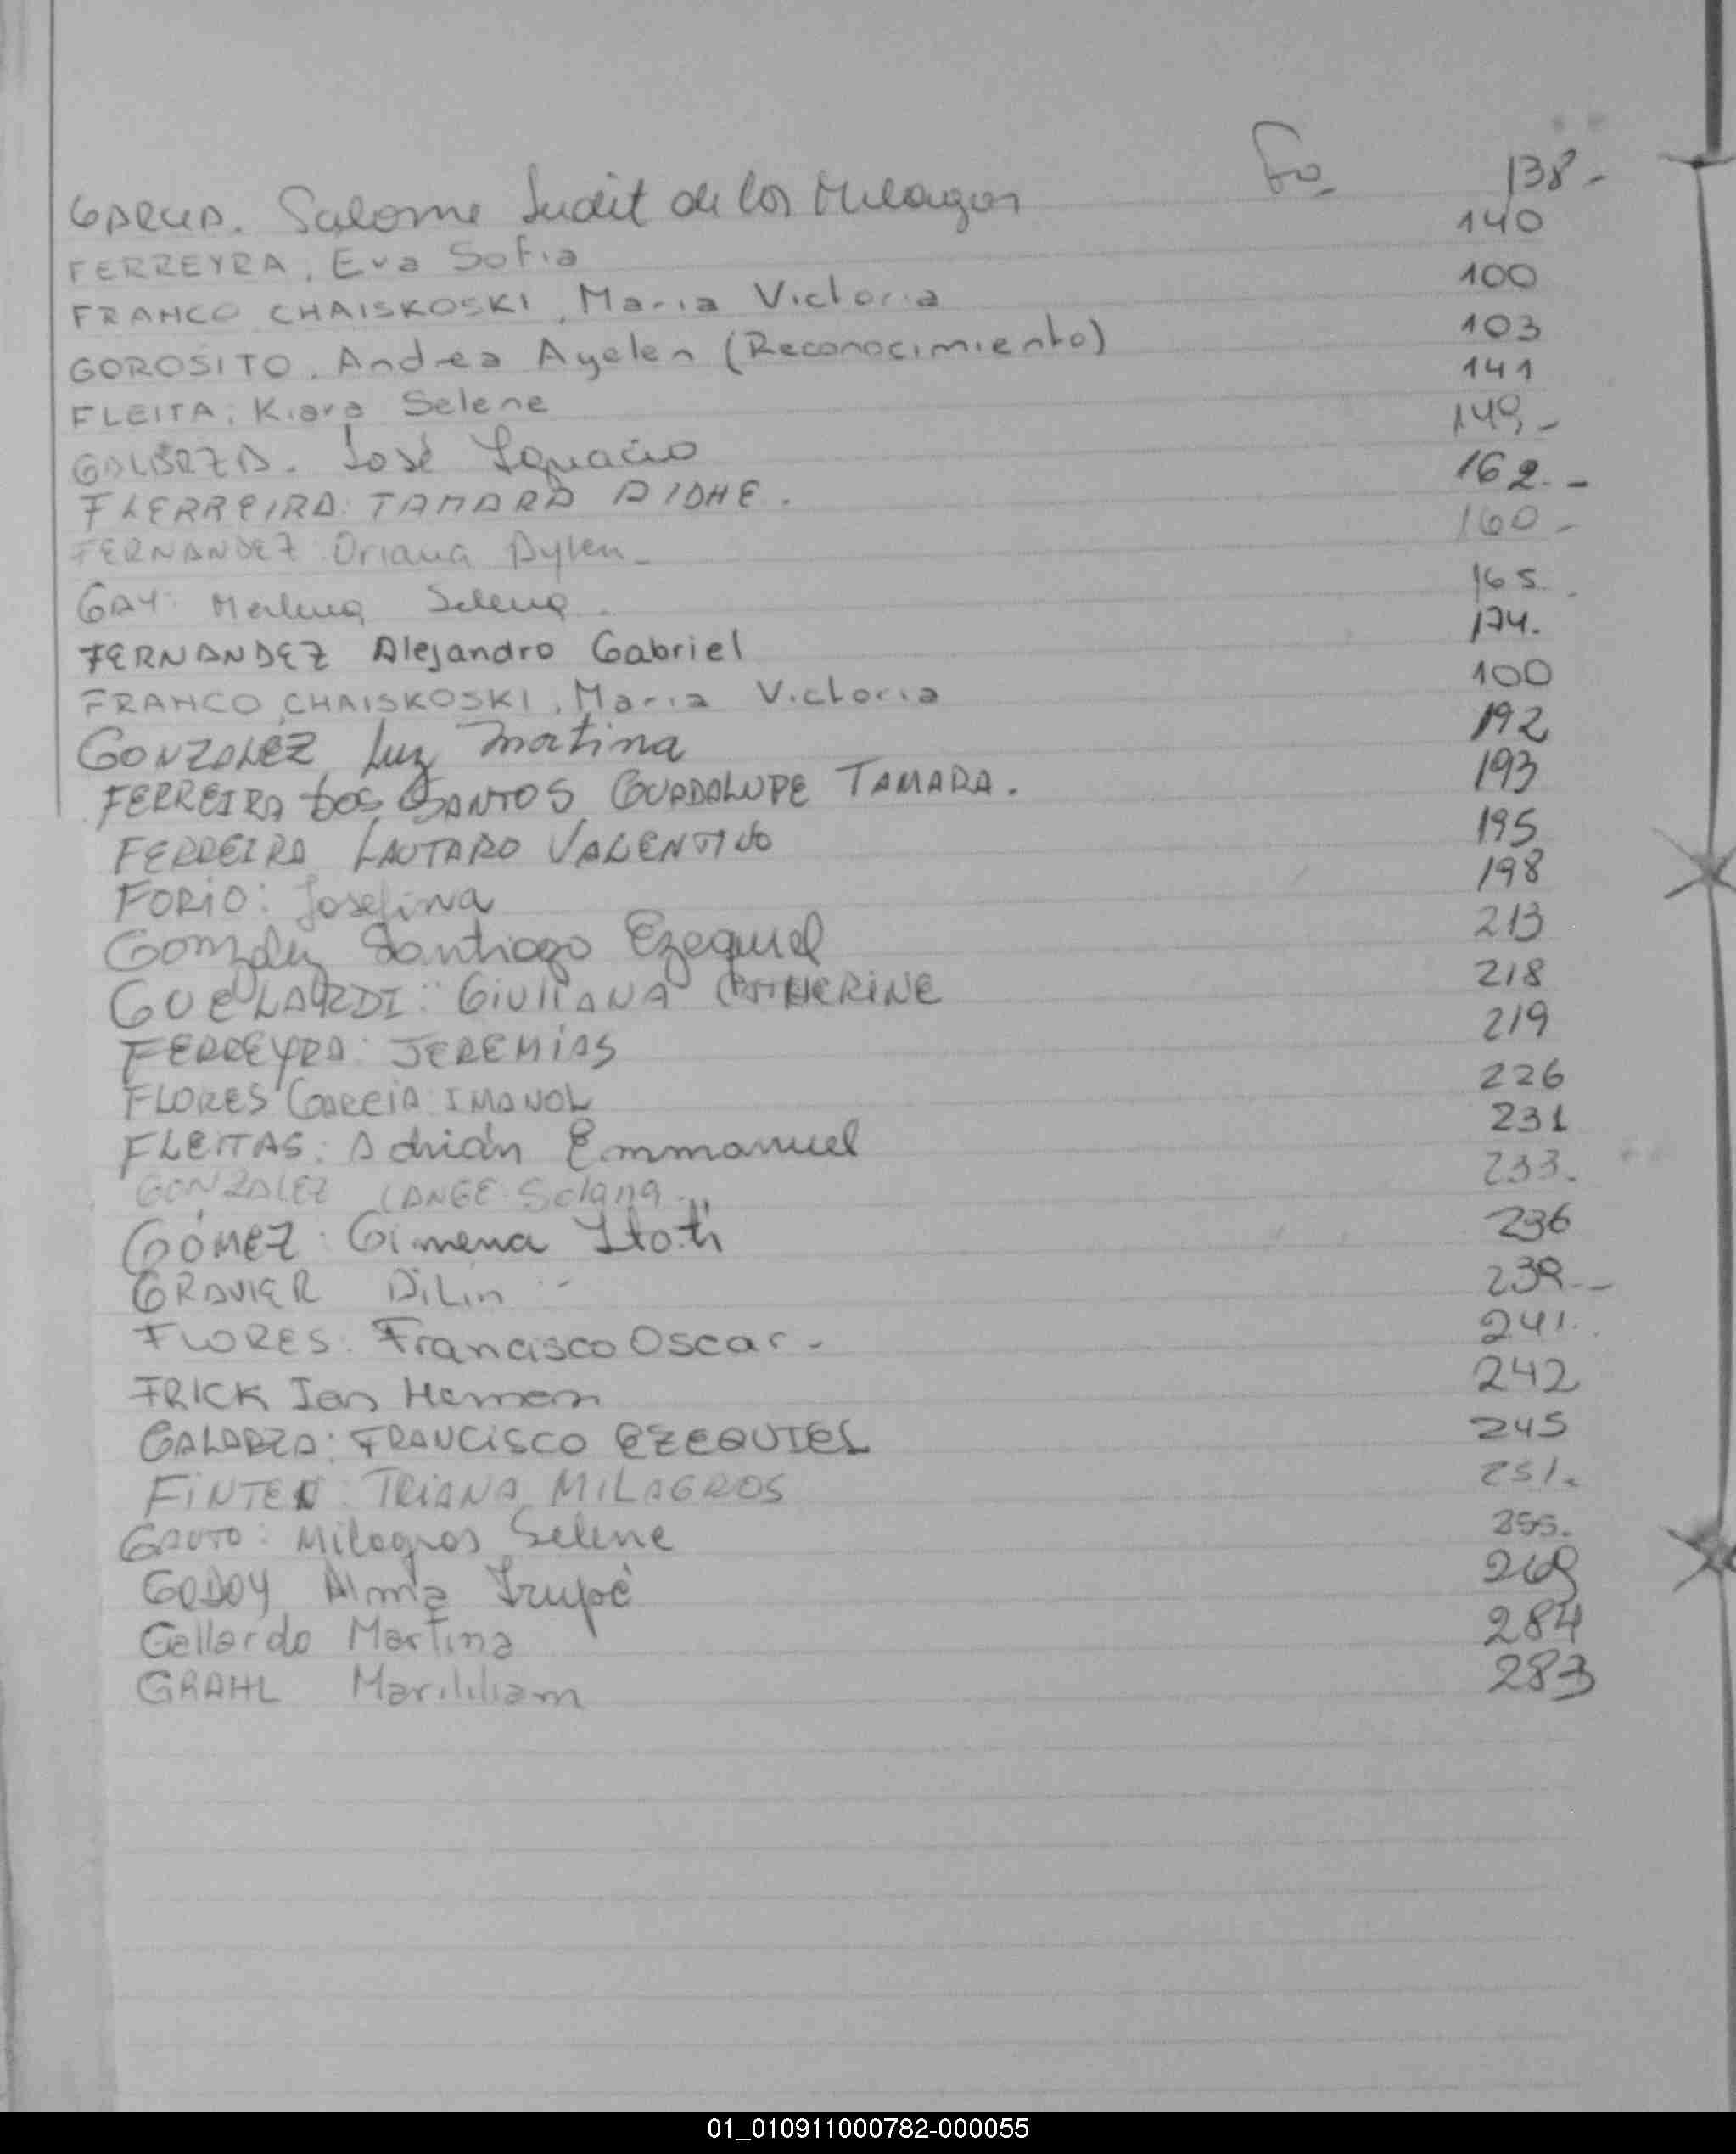 GARCIA. Salome Judit de los Milagros Fo. 138-
FERREYRA, Eva Sofia 140
FRANCO CHAISKOSKI, Maria Victoria 100
GOROSITO. Andrea Ayelen (Reconocimiento) 103
FLEITA; Kiara Selene 141
GALARZA. José Ignacio 149,-
FLERREIRA: TAMARA AIDHE. 162.-
FERNANDEZ: Oriana Aylen- 160-
GAY: Merlina Selena. 165.
FERNANDEZ Alejandro Gabriel 174.
FRANCO CHAISKOSKI, Maria Victoria 100
GONZALEZ Luz Martina 192
FERREIRA DOS SANTOS GUADALUPE TAMARA. 193
FERREIRA LAUTARO VALENTINO 195
FORIO: Josefina 198
Gonzalez Santiago Ezequiel 213
GUELARDI: GIULIANA CATHERINE 218
FERREYRA: JEREMIAS 219
FLORES GARCIA IMANOL 226
FLEITAS: Adrián Emmanuel 231
GONZALEZ LANGE Solana. 233.
GÓMEZ: Gimena Itatí 236
GRAVIER Dilin - 239.-
FLORES: Francisco Oscar- 241.
FRICK Ian Hernan 242
GALARZA: FRANCISCO EZEQUIEL 245
FINTEN: TRIANA MILAGROS 251.
GAUTO: Milagros Selene 255.
GODOY Alma Irupé 269
Gallardo Martina 284
GRAHL Marililiam 283
01_010911000782-000055